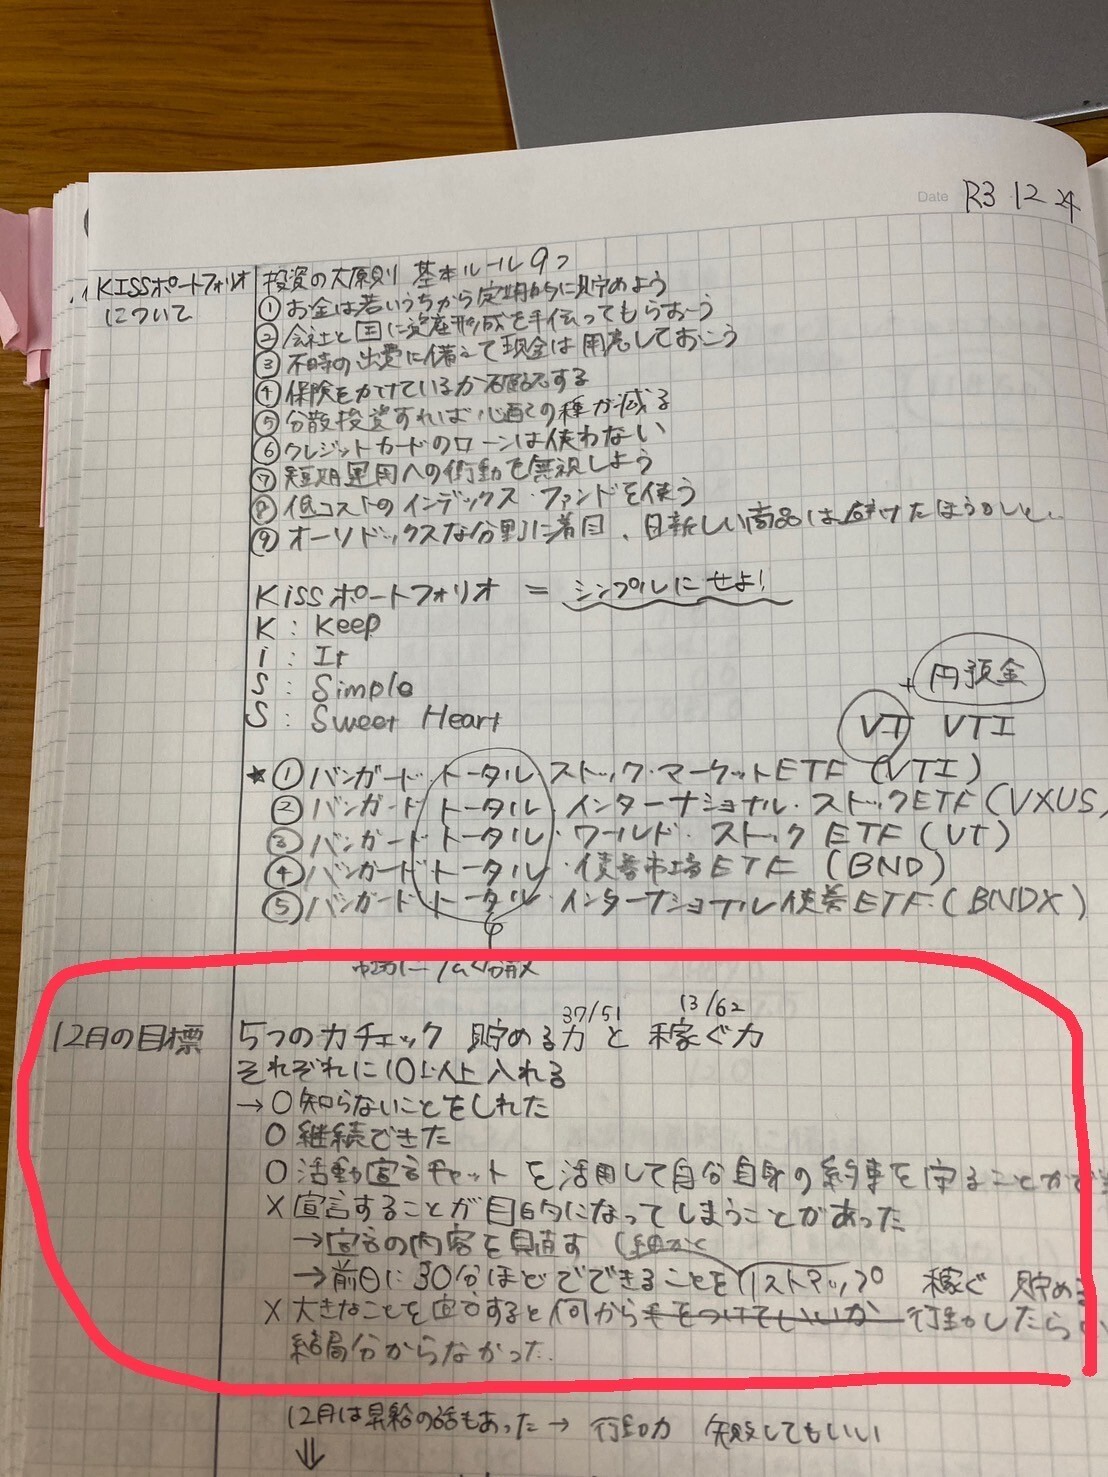 Date R3 12 24
KISSポートフォリオ
について
投資の大原則 基本ルール9つ
① お金は若いうちから定期的に貯めよう
② 会社と国に資産形成を手伝ってもらおう
③ 不時の出費に備えて現金は用意しておこう
④ 保険をかけているか確認する
⑤ 分散投資すれば心配の種が減る
⑥ クレジットカードのローンは使わない
⑦ 短期運用への衝動を無視しよう
⑧ 低コストのインデックス・ファンドを使う
⑨ オーソドックスな分野に着目、目新しい商品は避けたほうがいい
KiSSポートフォリオ = シンプルにせよ!
K : Keep
i : It
S : Simple
S : Sweet Heart
+ 円預金
VT VTI
★① バンガード・トータル ストック・マーケットETF (VTI)
② バンガード・トータル・インターナショナル・ストックETF (VXUS)
③ バンガード・トータル・ワールド・ストック ETF (Vt)
④ バンガード・トータル・債券市場ETF (BND)
⑤ バンガード・トータル・インターナショナル債券ETF (BNDX)
37/51 13/62
12月の目標
5つの力チェック 貯める力と稼ぐ力
それぞれに10以上入れる
→ ○ 知らないことをしれた
○ 継続できた
○ 活動宣言チャットを活用して自分自身の約束を守ることができ
× 宣言することが目的になってしまうことがあった
→宣言の内容を見直す (細かく
→前日に30分ほどでできることをリストアップ 稼ぐ 貯める
× 大きなことを宣言すると何から手をつけていいか 行動したら
結局分からなかった.
12月は昇給の話もあった → 行動力 失敗してもいい
⇓